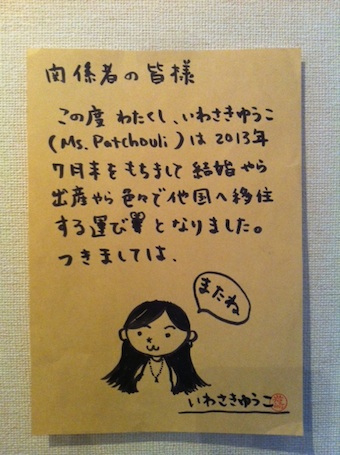 関係者の皆様
この度 わたくし、いわさきゆうこ
(Ms. Patchouli)は 2013年
7月末をもちまして 結婚やら
出産やら 色々で他国へ移住
する運び となりました。
つきましては、
またね
いわさきゆうこ